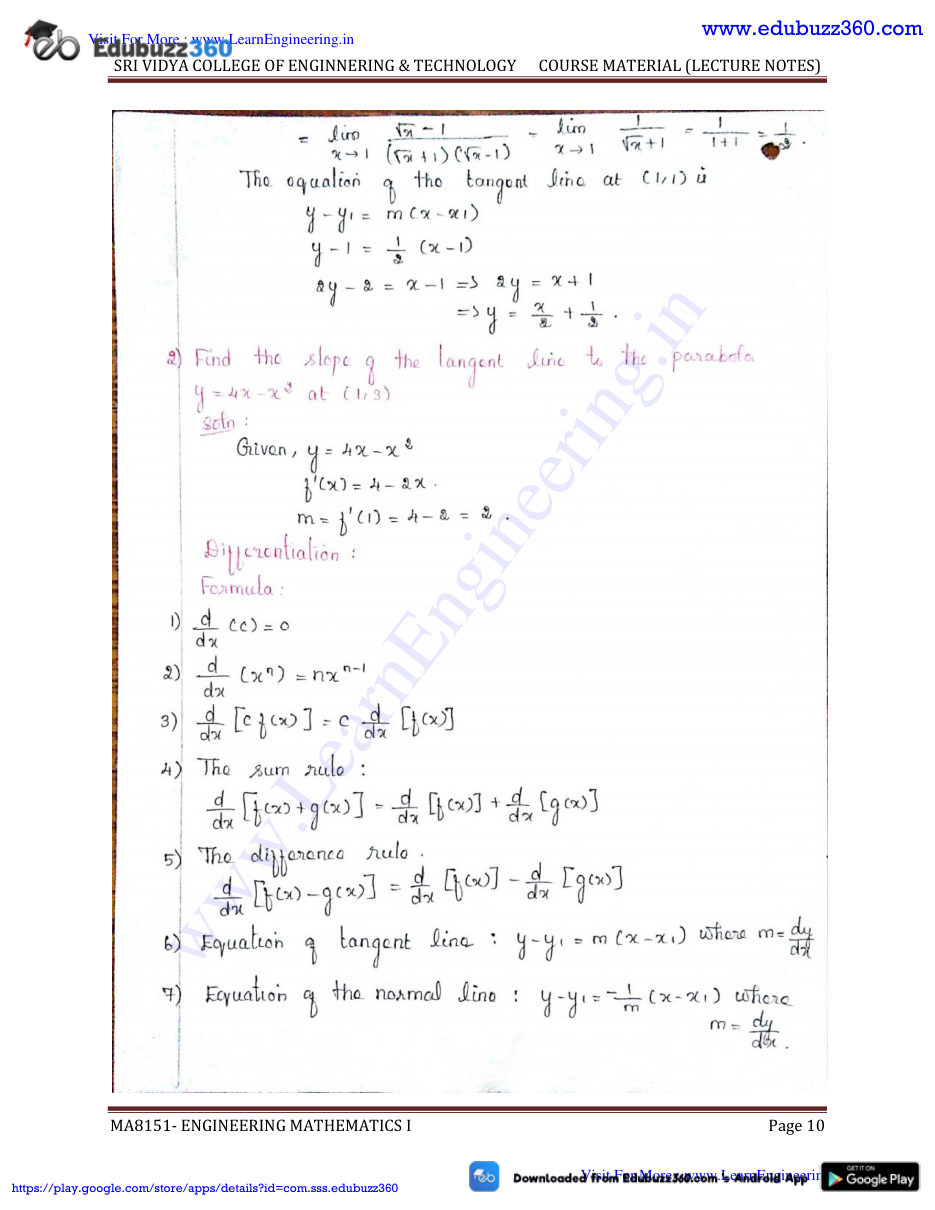 www.edubuzz360.com
Visit For More : www.LearnEngineering.in
Edubuzz360
SRI VIDYA COLLEGE OF ENGINNERING & TECHNOLOGY COURSE MATERIAL (LECTURE NOTES)
= lim x→1 (√x − 1)/((√x + 1)(√x − 1)) = lim x→1 1/(√x + 1) = 1/(1+1) = 1/2 .
The equation of the tangent line at (1,1) is
y − y₁ = m(x − x₁)
y − 1 = 1/2 (x − 1)
2y − 2 = x − 1 => 2y = x + 1
=> y = x/2 + 1/2 .
2) Find the slope of the tangent line to the parabola
y = 4x − x² at (1,3).
Soln :
Given, y = 4x − x²
f'(x) = 4 − 2x .
m = f'(1) = 4 − 2 = 2 .
Differentiation :
Formula :
1) d/dx (c) = 0
2) d/dx (xⁿ) = nxⁿ⁻¹
3) d/dx [c f(x)] = c d/dx [f(x)]
4) The sum rule :
d/dx [f(x) + g(x)] = d/dx [f(x)] + d/dx [g(x)]
5) The difference rule .
d/dx [f(x) − g(x)] = d/dx [f(x)] − d/dx [g(x)]
6) Equation of tangent line : y − y₁ = m(x − x₁) where m = dy/dx
7) Equation of the normal line : y − y₁ = −1/m (x − x₁) where
m = dy/dx .
www.LearnEngineering.in
MA8151- ENGINEERING MATHEMATICS I Page 10
https://play.google.com/store/apps/details?id=com.sss.edubuzz360
Downloaded from EduBuzz360.com 's Android App
Visit For More : www.LearnEngineering.in
GET IT ON
Google Play